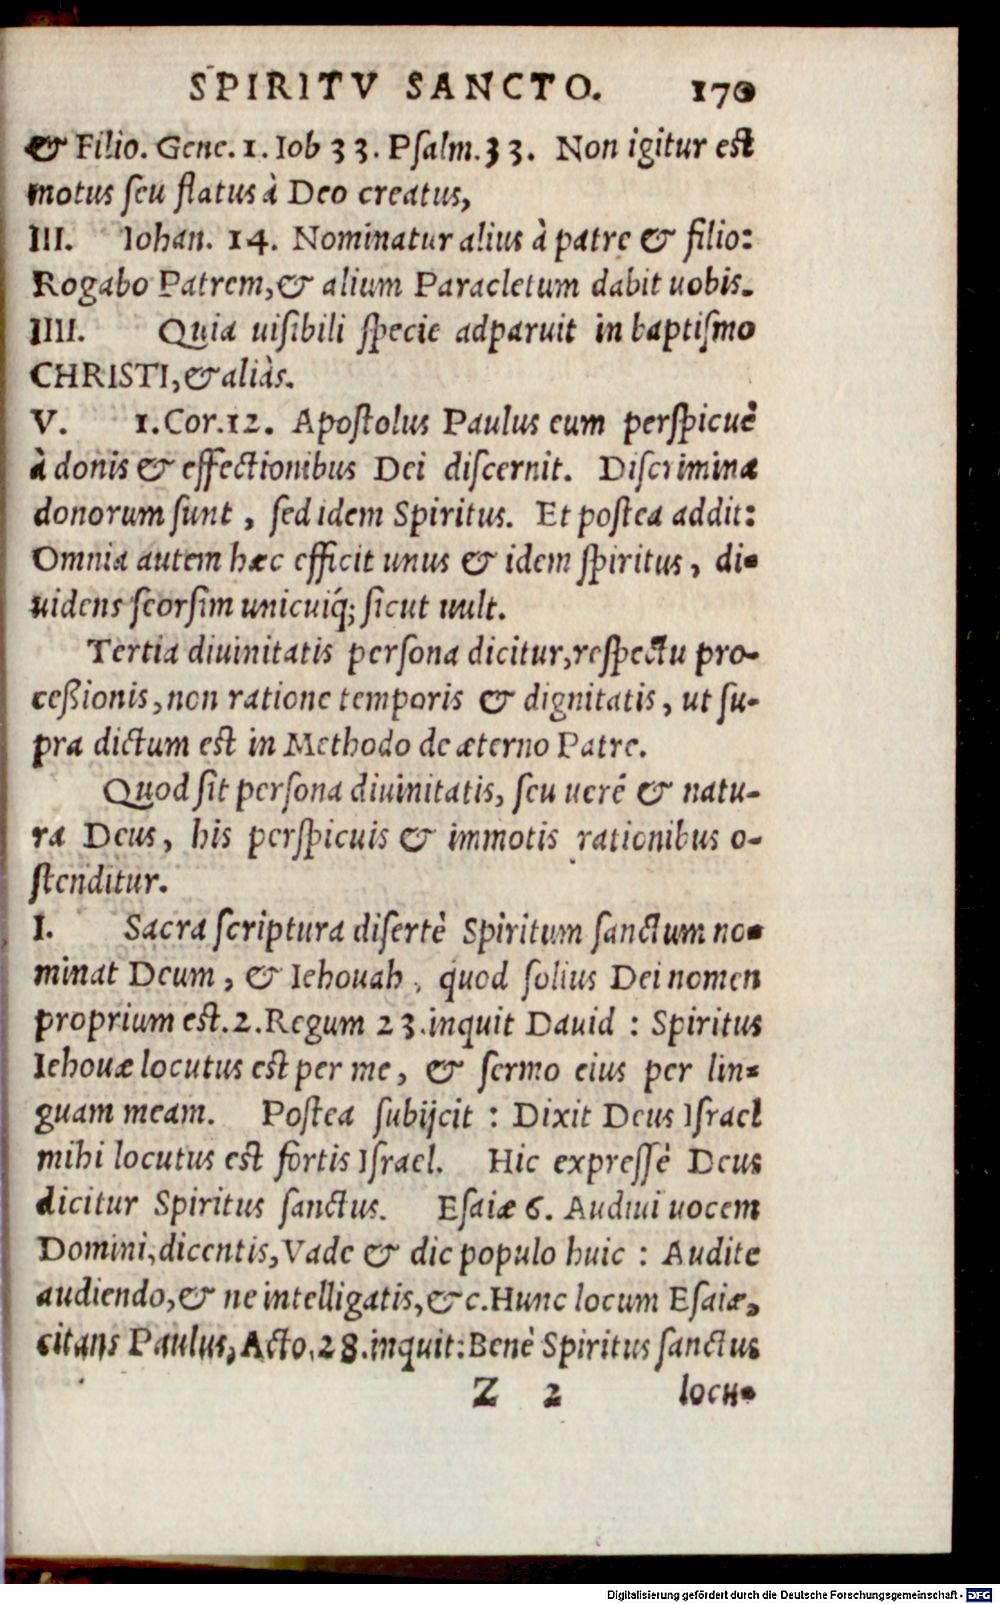 SPIRITV SANCTO. 170
& Filio. Gene. 1. Iob 33. Pſalm. 33. Non igitur est
motus ſeu flatus à Deo creatus,
III. Iohan. 14. Nominatur alius à patre & filio:
Rogabo Patrem, & alium Paracletum dabit uobis.
IIII. Quia uiſibili ſpecie adparuit in baptiſmo
CHRISTI, & aliàs.
V. 1. Cor. 12. Apoſtolus Paulus eum perſpicuè
à donis & effectionibus Dei diſcernit. Diſcrimina
donorum ſunt, ſed idem Spiritus. Et poſtea addit:
Omnia autem hæc efficit unus & idem ſpiritus, di-
uidens ſeorſim unicuiq́; ſicut uult.
Tertia diuinitatis perſona dicitur, reſpectu pro-
ceßionis, non ratione temporis & dignitatis, ut ſu-
pra dictum est in Methodo de æterno Patre.
Quod ſit perſona diuinitatis, ſeu uerè & natu-
ra Deus, his perſpicuis & immotis rationibus o-
ſtenditur.
I. Sacra ſcriptura diſertè Spiritum ſanctum no-
minat Deum, & Iehouah, quod ſolius Dei nomen
proprium est. 2. Regum 23. inquit Dauid: Spiritus
Iehouæ locutus est per me, & ſermo eius per lin-
guam meam. Poſtea ſubijcit: Dixit Deus Iſrael
mihi locutus est fortis Iſrael. Hic expreſſè Deus
dicitur Spiritus ſanctus. Eſaiæ 6. Audiui uocem
Domini, dicentis, Vade & dic populo huic: Audite
audiendo, & ne intelligatis, &c. Hunc locum Eſaiæ,
citans Paulus, Acto. 28. inquit: Benè Spiritus ſanctus
Z 2 locu-
Digitalisierung gefördert durch die Deutsche Forschungsgemeinschaft - DFG